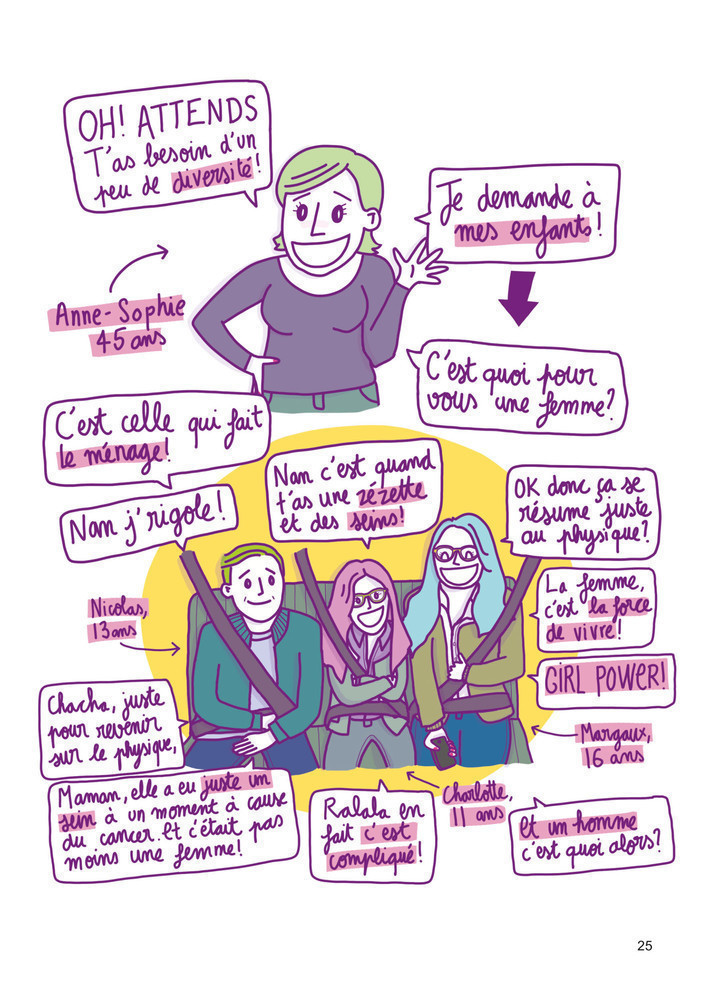 OH! ATTENDS
T'as besoin d'un
peu de diversité!
Je demande à
mes enfants!
Anne-Sophie
45 ans
C'est quoi pour
vous une femme?
C'est celle qui fait
le ménage!
Nan j'rigole!
Nan c'est quand
t'as une zézette
et des seins!
OK donc ça se
résume juste
au physique?
La femme,
c'est la force
de vivre!
GIRL POWER!
Nicolas,
13 ans
Chacha, juste
pour revenir
sur le physique,
Maman, elle a eu juste un
sein à un moment à cause
du cancer. Et c'était pas
moins une femme!
Margaux,
16 ans
Charlotte,
11 ans
Ralala en
fait c'est
compliqué!
Et un homme
c'est quoi alors?
25